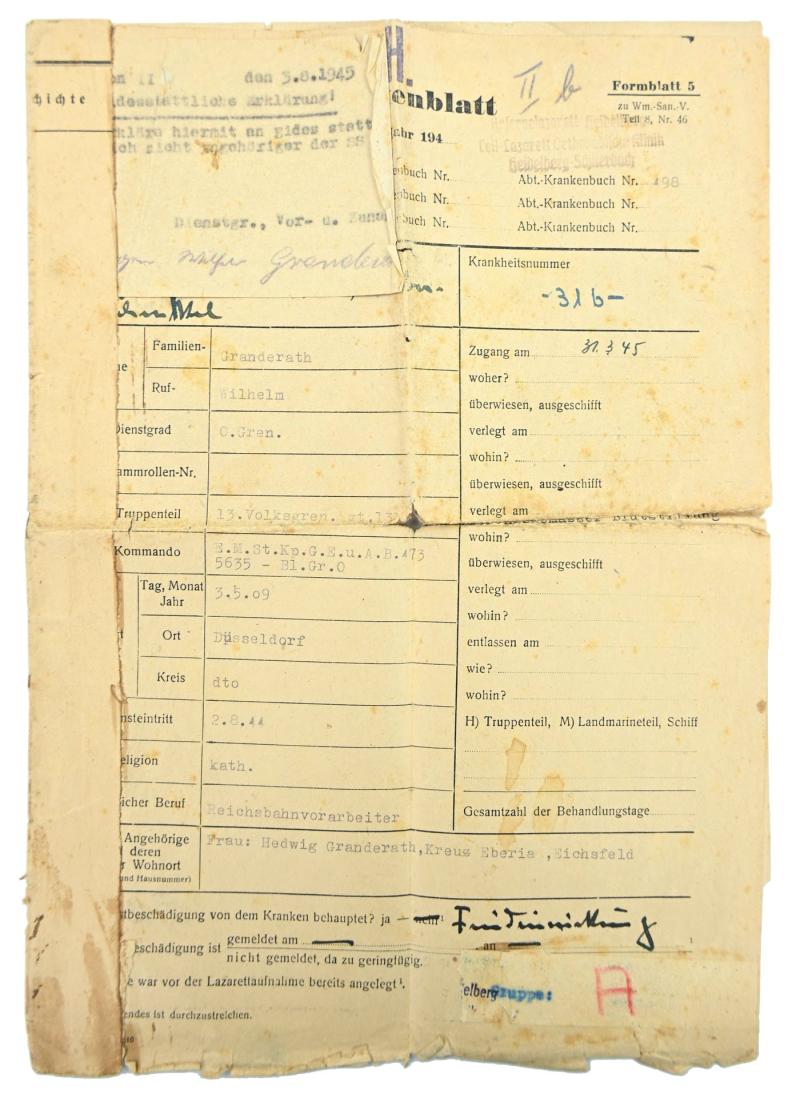 chichte
on II den 3.8.1945
desstattliche Erklärung!
kläre hiermit an eides statt
ich nicht angehöriger der SS
Dienstgr., Vor- u. Zuna
Granderath
H.
enblatt
II b
Formblatt 5
zu Wm.-San.-V.
Teil 8, Nr. 46
ahr 194
Heidelberg Schlierbach
enbuch Nr. Abt.-Krankenbuch Nr. 198
nbuch Nr. Abt.-Krankenbuch Nr.
buch Nr. Abt.-Krankenbuch Nr.
Krankheitsnummer
-31b-
Familien- Granderath
Ruf- Wilhelm
Dienstgrad O.Gren.
ammrollen-Nr.
Truppenteil 13.Volksgren.
Kommando E.M.St.Kp.G.E.u.A.B.473
5635 - Bl.Gr.O
Tag, Monat
Jahr 3.5.09
Ort Düsseldorf
Kreis dto
nsteintritt 2.8.44
eligion kath.
icher Beruf Reichsbahnvorarbeiter
Angehörige
deren
Wohnort
und Hausnummer)
Frau: Hedwig Granderath,Kreuz Eberia ,Eichsfeld
Zugang am 31.3 45
woher?
überwiesen, ausgeschifft
verlegt am
wohin?
überwiesen, ausgeschifft
verlegt am
Blutstillung
wohin?
überwiesen, ausgeschifft
verlegt am
wohin?
entlassen am
wie?
wohin?
H) Truppenteil, M) Landmarineteil, Schiff
Gesamtzahl der Behandlungstage
tbeschädigung von dem Kranken behauptet? ja — nein¹ Feindeinwirkung
eschädigung ist gemeldet am an
nicht gemeldet, da zu geringfügig.
e war vor der Lazarettaufnahme bereits angelegt¹.
elberg Gruppe: A
endes ist durchzustreichen.